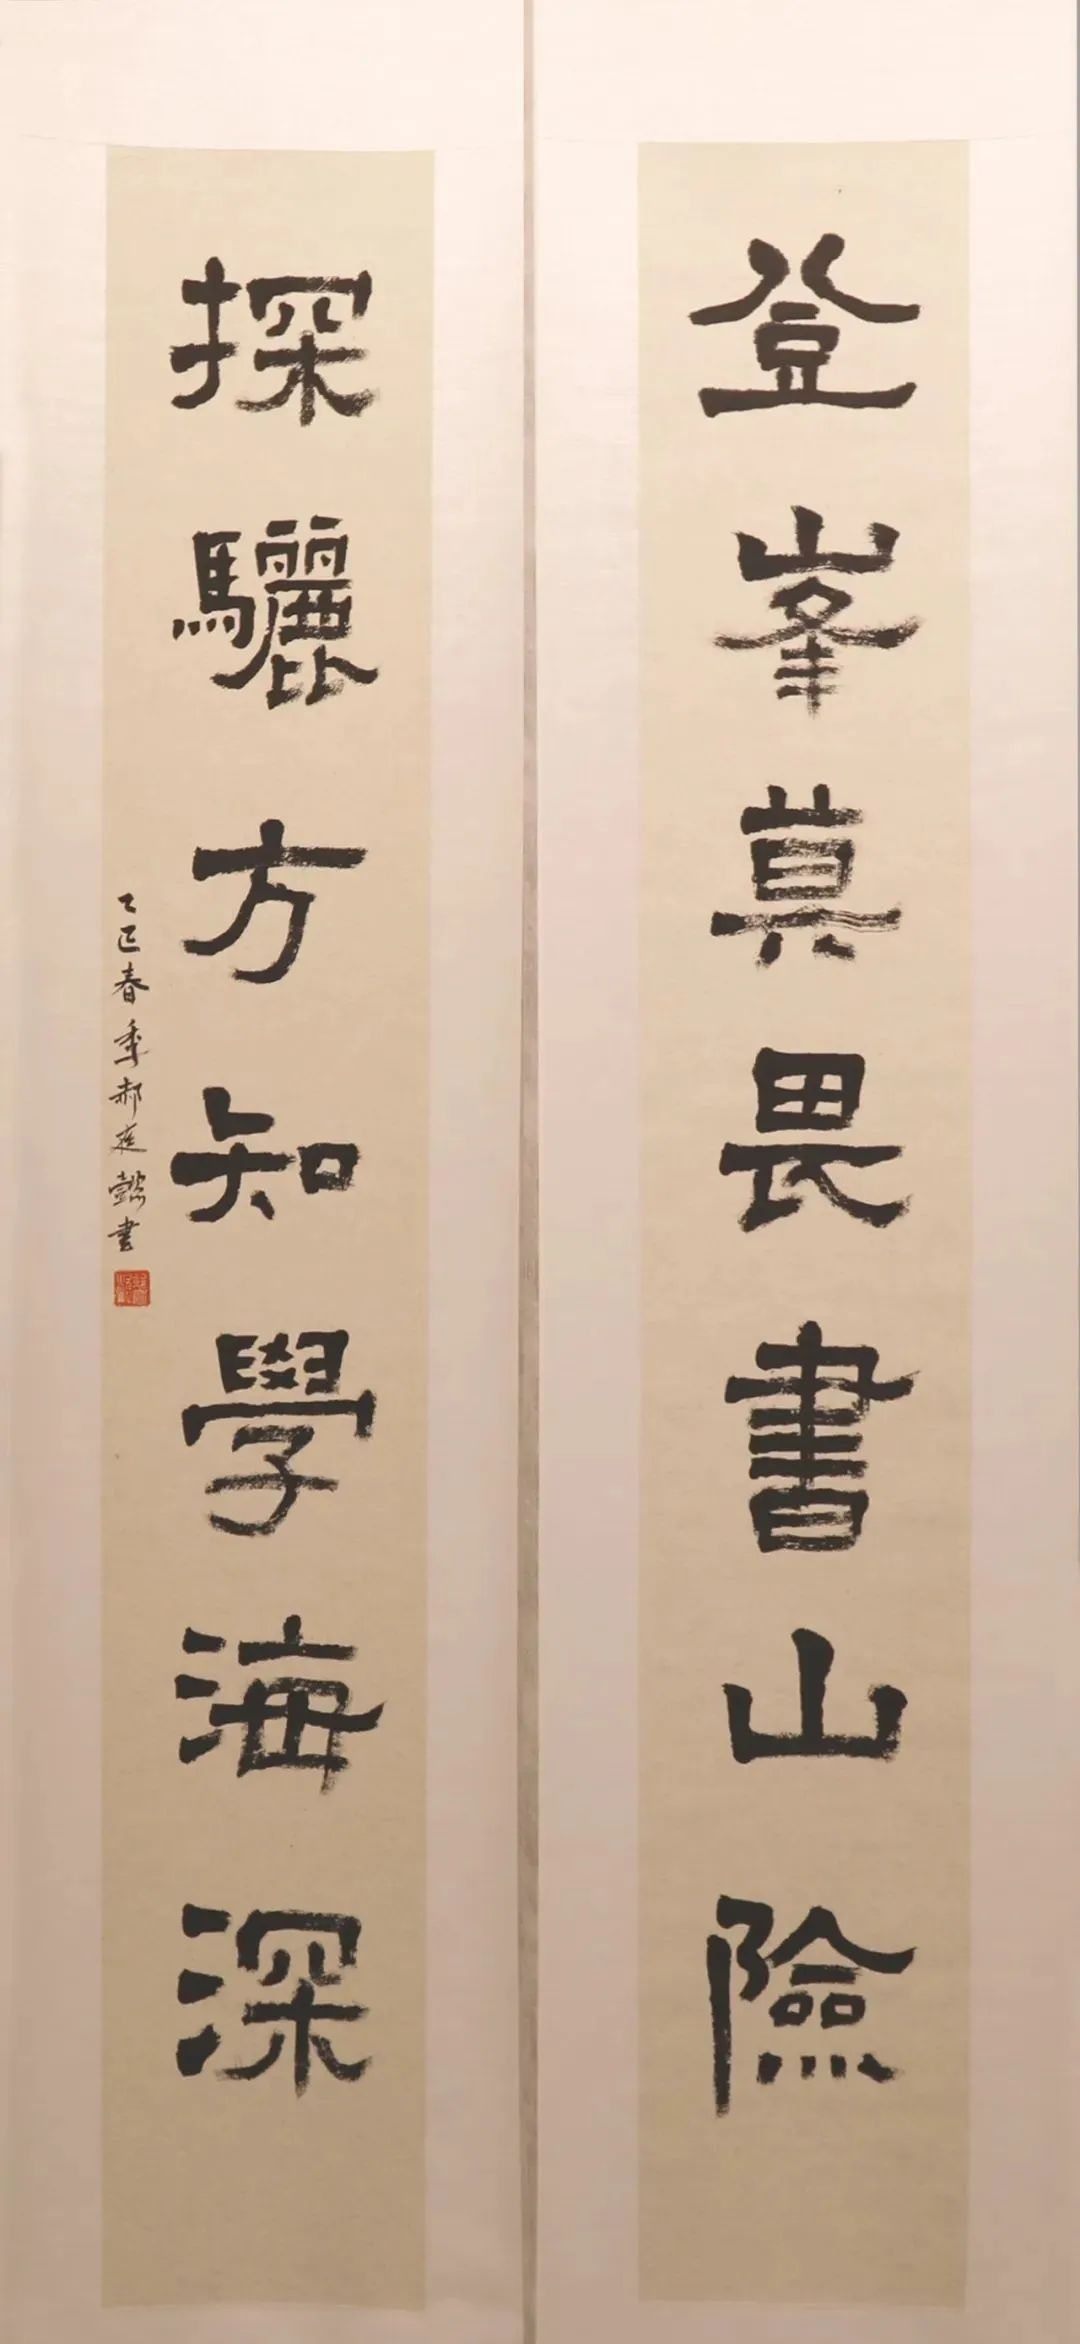 登峯莫畏書山險
探驪方知學海深
乙巳春季郝庭懿書